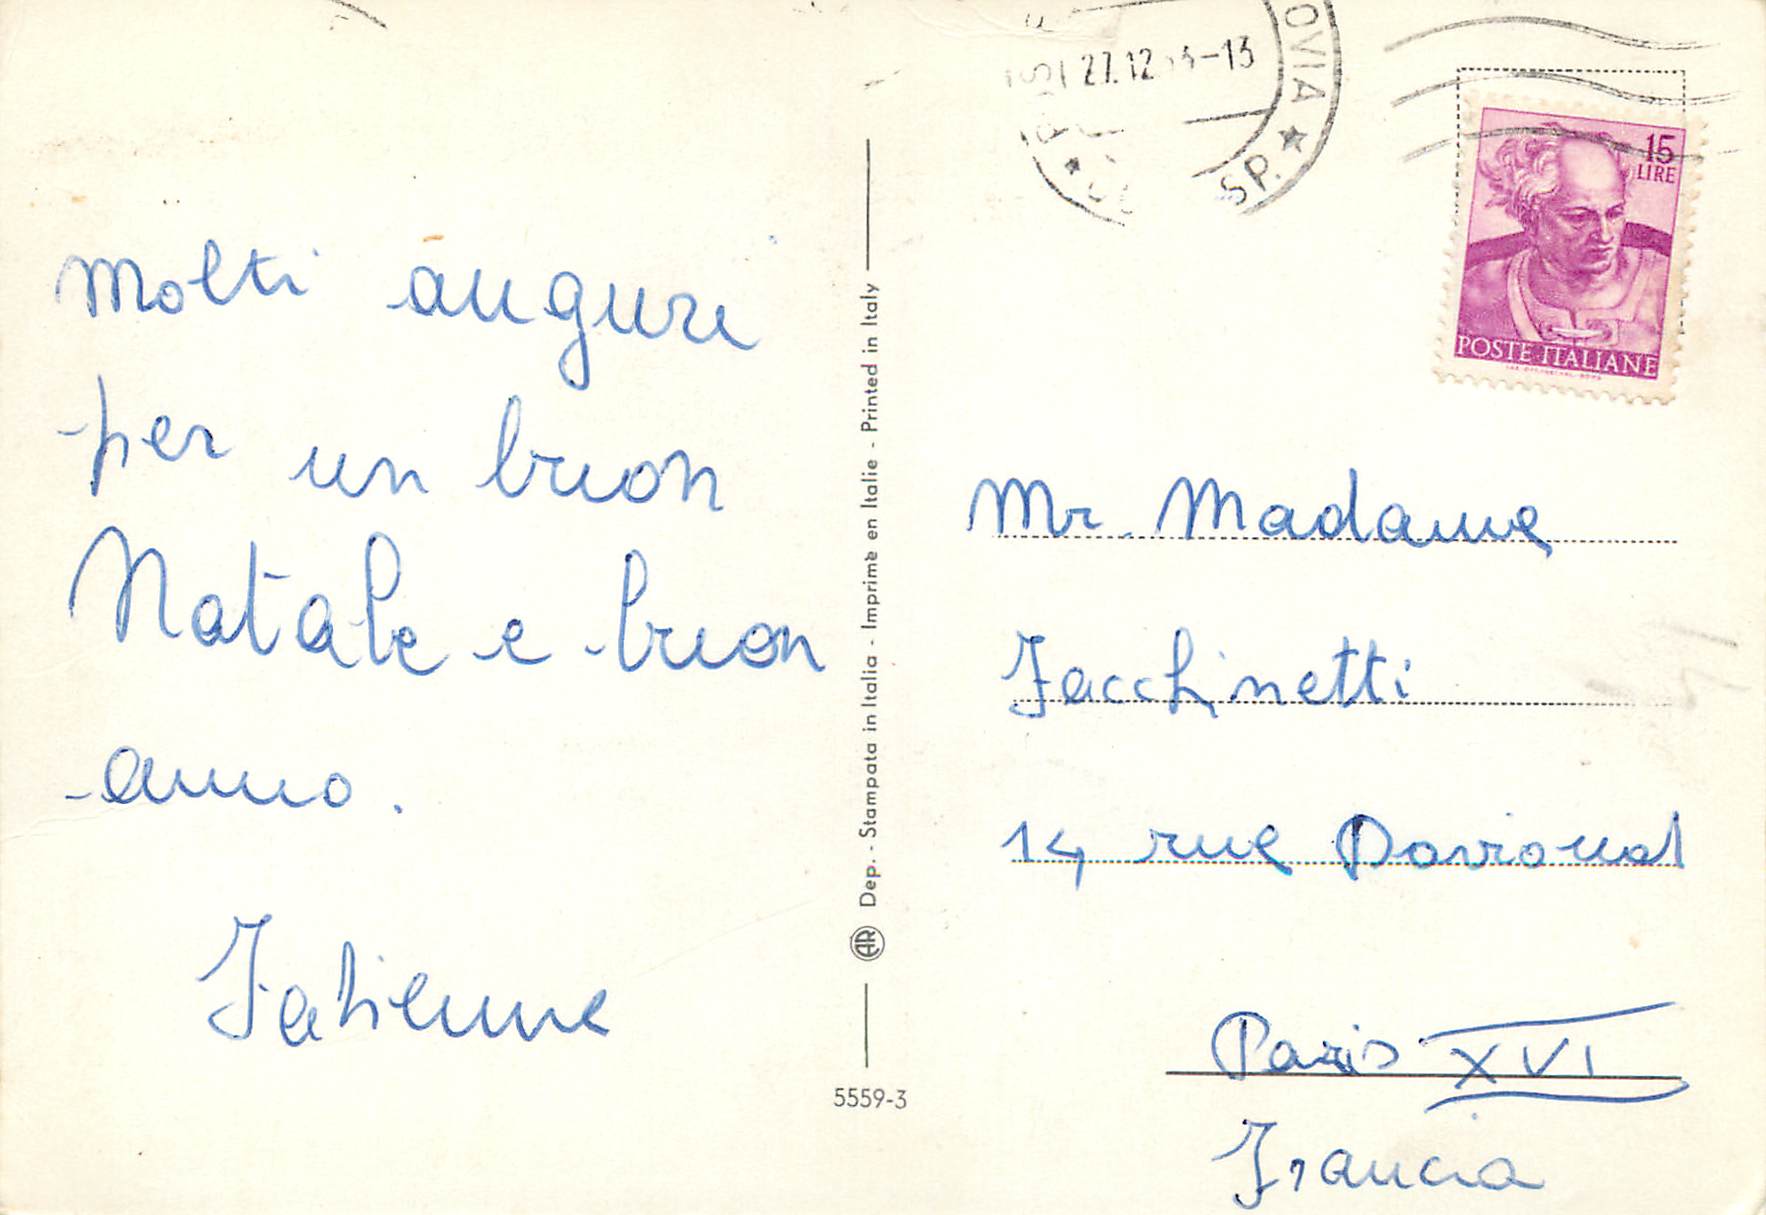 Molti auguri
per un buon
Natale e buon
anno.
Fabienne
Dep. - Stampata in Italia - Imprimè en Italie - Printed in Italy
AR
5559-3
27.12
-13
OVIA ★
SP.
15
LIRE
POSTE ITALIANE
Mr. Madame
Facchinetti
14 rue Davioud
Paris XVI
Francia